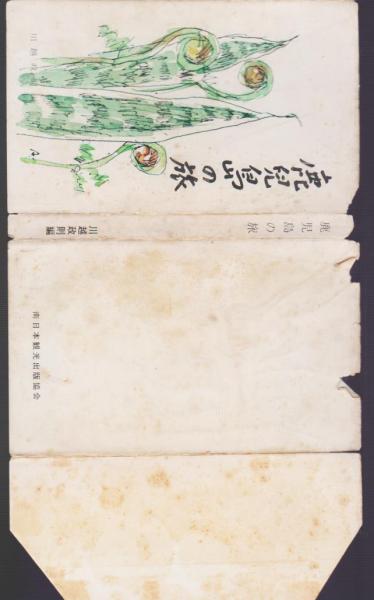 鹿児島の旅
川越政
鹿児島の旅
川越政則編
南日本観光出版協会